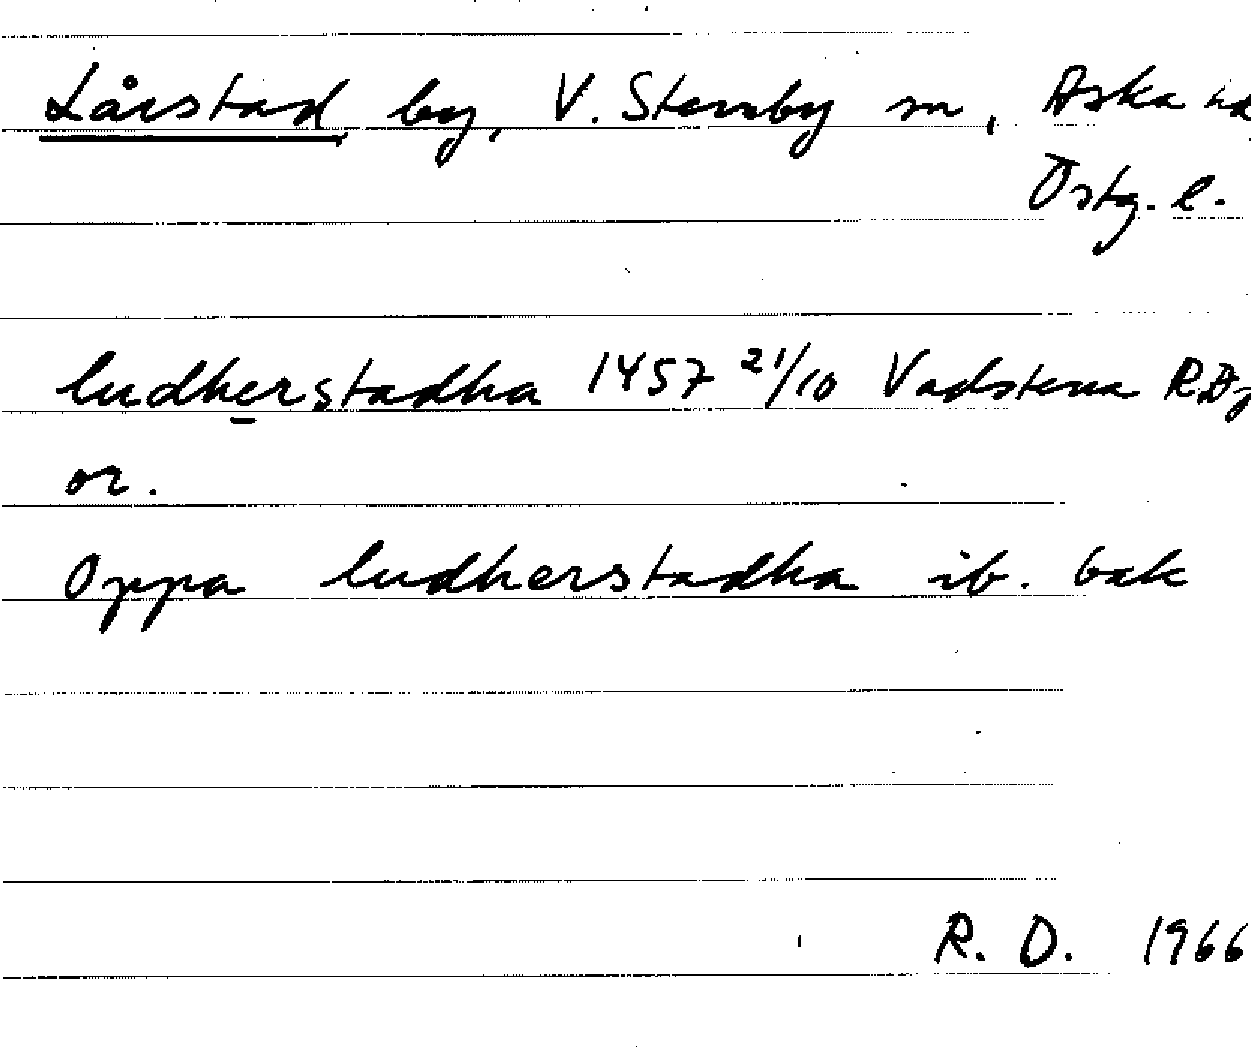 Lårstad by, V. Stenby sn, Aska hd
Östg. l.
ludherstadha 1457 21/10 Vadstena RA,
or.
Oppa ludherstadha ib. bak
R. D. 1966